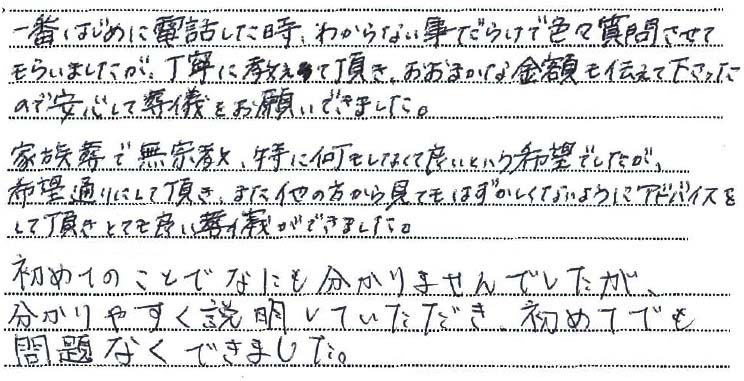 一番はじめに電話した時、わからない事だらけで色々質問させて
もらいましたが、丁寧に教えて頂き、おおまかな金額も伝えて下さった
ので安心して葬儀をお願いできました。
家族葬で無宗教、特に何もしなくて良いという希望でしたが、
希望通りにして頂き、また他の方から見てもはずかしくないようにアドバイスを
して頂きとても良い葬儀ができました。
初めてのことでなにも分かりませんでしたが、
分かりやすく説明していただき、初めてでも
問題なくできました。